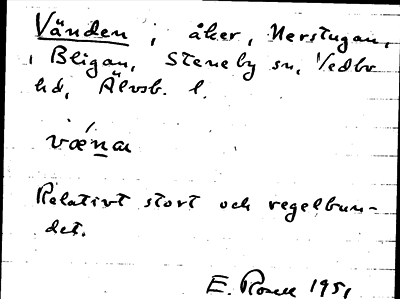 Vänden, åker, Nerstugan,
i Bligan, Steneby sn, Vedbo
hd, Älvsb. l.
væ´nan
Relativt stort och regelbun-
det.
E. 1951